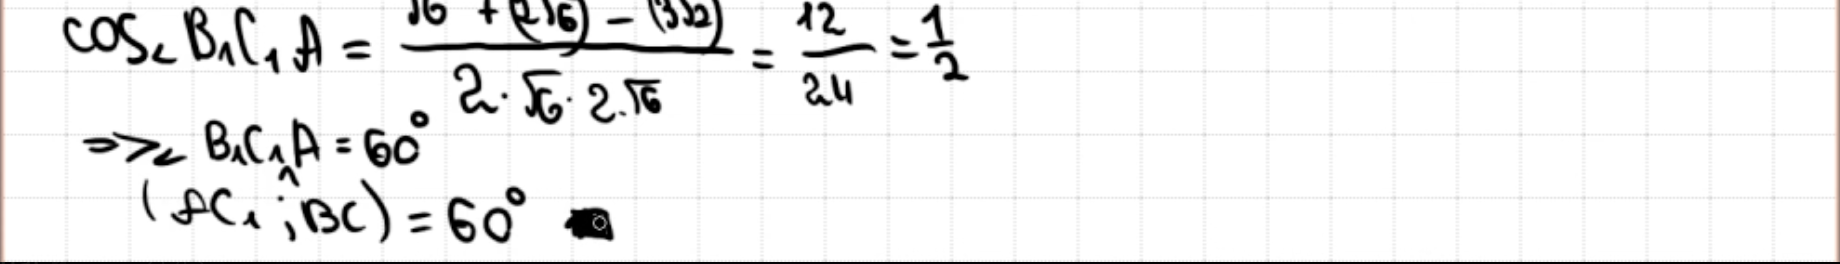 cos∠B₁C₁A = (√6 + (2√6) - (3√2)) / (2·√6·2·√6) = 12/24 = 1/2
=> ∠B₁C₁A = 60°
(AC₁ ^; BC) = 60°